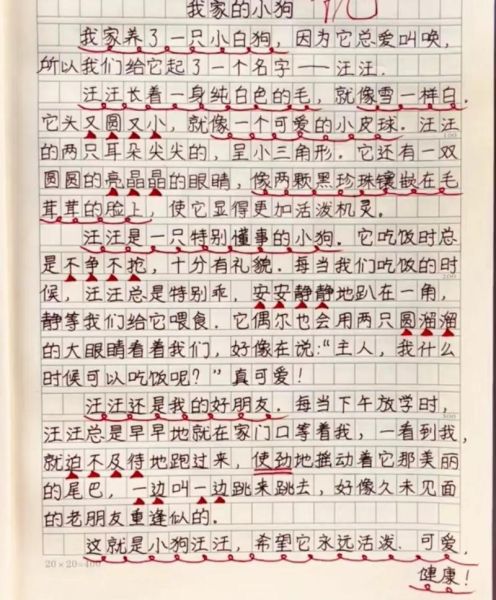 我家的小狗
我家养了一只小白狗，因为它总爱叫唤，
所以我们给它起了一个名字——汪汪．
汪汪长着一身纯白色的毛，就像雪一样白．
它头又圆又小，就像一个可爱的小皮球．汪汪
的两只耳朵尖尖的，呈小三角形．它还有一双
圆圆的亮晶晶的眼睛，像两颗黑珍珠镶嵌在毛
茸茸的脸上，使它显得更加活泼机灵．
汪汪是一只特别懂事的小狗．它吃饭时总
是不争不抢，十分有礼貌．每当我们吃饭的时
候，汪汪总是特别乖，安安静静地趴在一角，
静等我们给它喂食．它偶尔也会用两只圆溜溜
的大眼睛看着我们，好像在说：“主人，我什么
时候可以吃饭呢？”真可爱！
汪汪还是我的好朋友．每当下午放学时，
汪汪总是早早地就在家门口等着我，一看到我，
就迫不及待地跑过来，使劲地摇动着它那美丽
的尾巴，一边叫一边跳来跳去，好像久未见面
的老朋友重逢似的．
这就是小狗汪汪，希望它永远活泼．可爱，
健康！
20×20=400